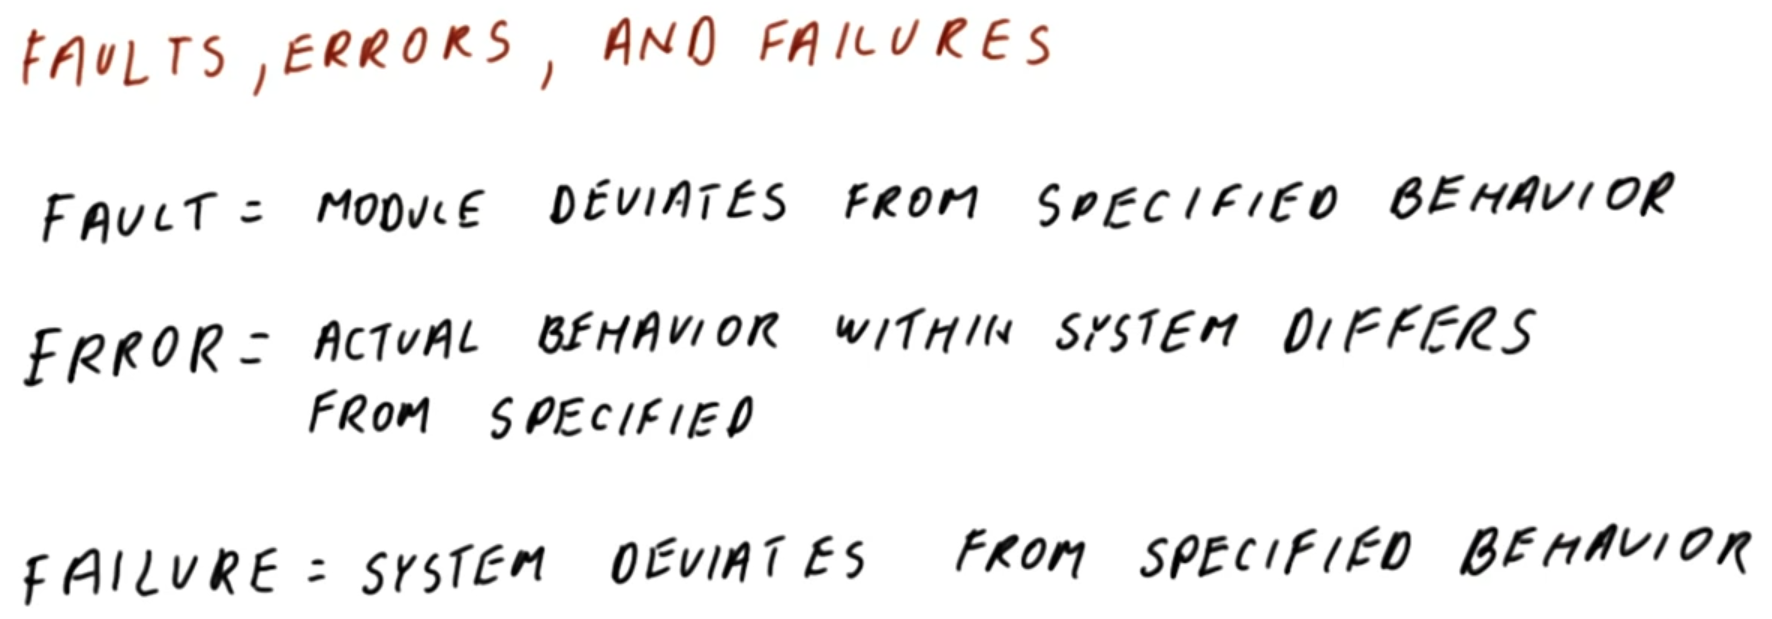 FAULTS, ERRORS, AND FAILURES
FAULT = MODULE DEVIATES FROM SPECIFIED BEHAVIOR
ERROR = ACTUAL BEHAVIOR WITHIN SYSTEM DIFFERS
FROM SPECIFIED
FAILURE = SYSTEM DEVIATES FROM SPECIFIED BEHAVIOR